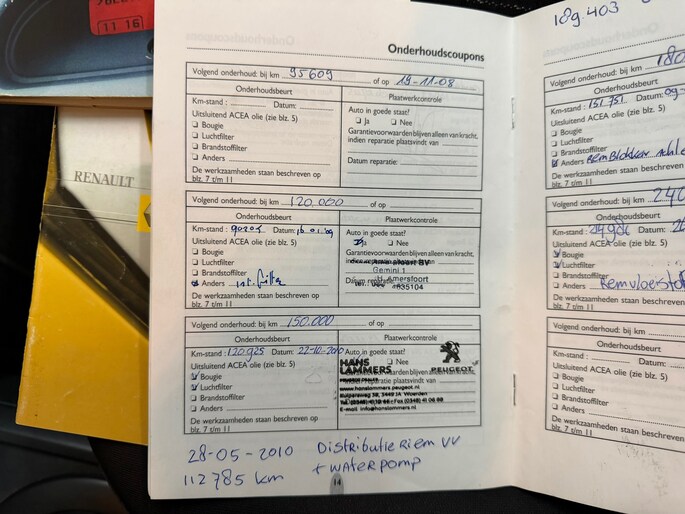 11 16
RENAULT
Onderhoudscoupons
Volgend onderhoud: bij km 95609 of op 19-11-08
Onderhoudsbeurt Plaatwerkcontrole
Km-stand : Datum: Auto in goede staat?
Uitsluitend ACEA olie (zie blz. 5) ❏ Ja ❏ Nee
❏ Bougie Garantievoorwaarden blijven alleen van kracht,
❏ Luchtfilter indien reparatie plaatsvindt van
❏ Brandstoffilter
❏ Anders Datum reparatie:
De werkzaamheden staan beschreven op
blz. 7 t/m 11
Volgend onderhoud: bij km 120.000 of op
Onderhoudsbeurt Plaatwerkcontrole
Km-stand : Datum: 16.01.09 Auto in goede staat?
Uitsluitend ACEA olie (zie blz. 5) Ja ❏ Nee
❏ Bougie Garantievoorwaarden blijven alleen van kracht,
❏ Luchtfilter Amersfoort BV
❏ Brandstoffilter Gemini 1
❏ Anders int. filter Amersfoort
De werkzaamheden staan beschreven op
blz. 7 t/m 11
Volgend onderhoud: bij km 150.000 of op
Onderhoudsbeurt Plaatwerkcontrole
Km-stand : 120.925 Datum: 22-10-2010 Auto in goede staat?
Uitsluitend ACEA olie (zie blz. 5) ❏ Nee
❏ Bougie HANS LAMMERS PEUGEOT
❏ Luchtfilter reparatie plaatsvindt van
❏ Brandstoffilter www.hanslammers.peugeot.nl
❏ Anders 3449 JA Woerden
De werkzaamheden staan beschreven op E-mail info@hanslammers.nl
blz. 7 t/m 11
28-05-2010 Distributieriem VV
112785 km + waterpomp
14
189.403
Volgend onderhoud: bij km
Km-stand : 151.751 Datum:
Uitsluitend ACEA olie (zie blz. 5)
❏ Bougie
❏ Luchtfilter
❏ Brandstoffilter
❏ Anders Remblokken
De werkzaamheden staan beschreven op
blz. 7 t/m 11
Volgend onderhoud: bij km 240
Onderhoudsbeurt
Km-stand : Datum:
Uitsluitend ACEA olie (zie blz. 5)
❏ Bougie
❏ Luchtfilter
❏ Brandstoffilter
❏ Anders Remvloeistof
De werkzaamheden staan beschreven op
blz. 7 t/m 11
Volgend onderhoud: bij km
Onderhoudsbeurt
Km-stand : Datum:
Uitsluitend ACEA olie (zie blz. 5)
❏ Bougie
❏ Luchtfilter
❏ Brandstoffilter
❏ Anders
De werkzaamheden staan beschreven op
blz. 7 t/m 11